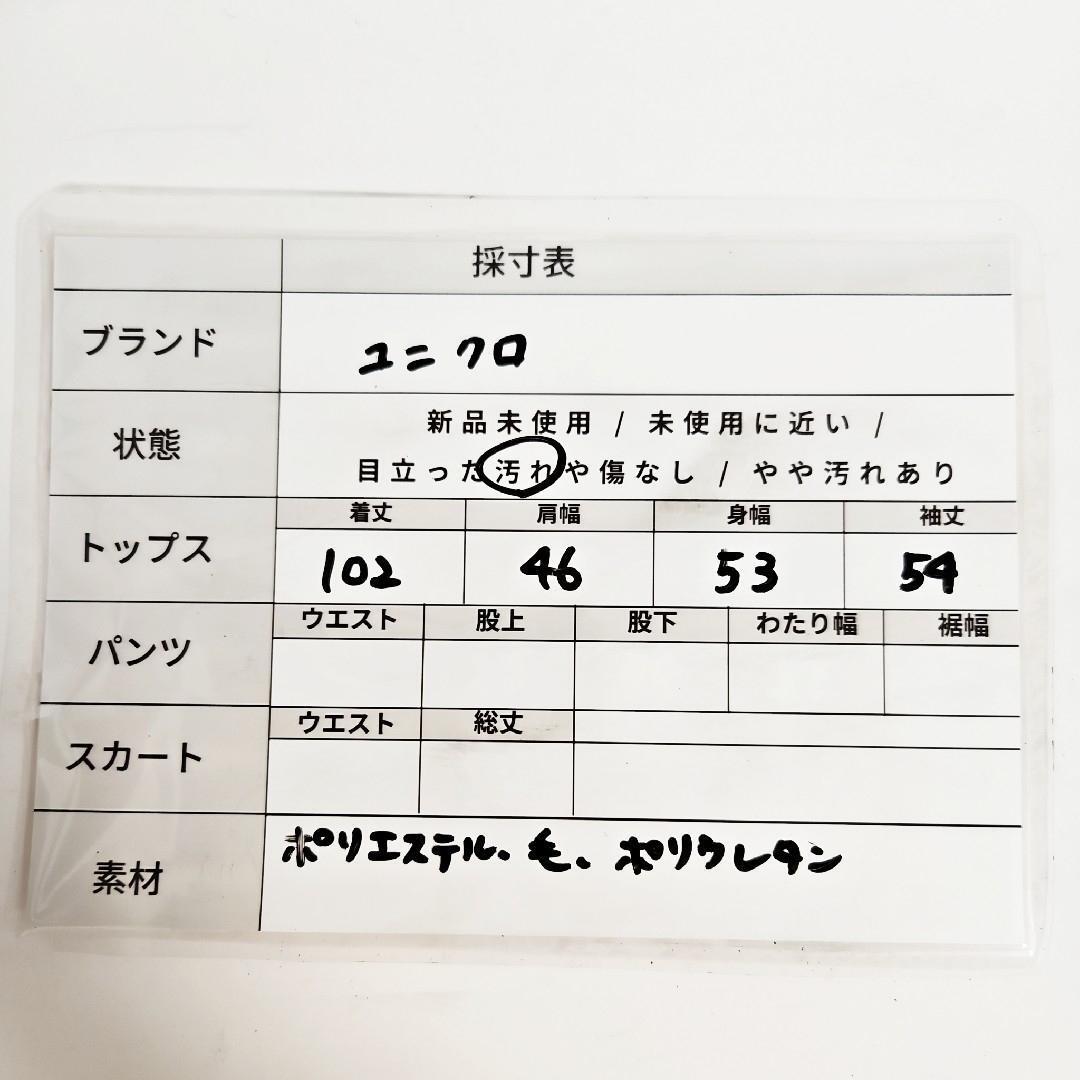 採寸表
ブランド ユニクロ
状態 新品未使用 / 未使用に近い /
目立った汚れや傷なし / やや汚れあり
トップス 着丈 肩幅 身幅 袖丈
102 46 53 54
パンツ ウエスト 股上 股下 わたり幅 裾幅
スカート ウエスト 総丈
素材 ポリエステル、毛、ポリウレタン